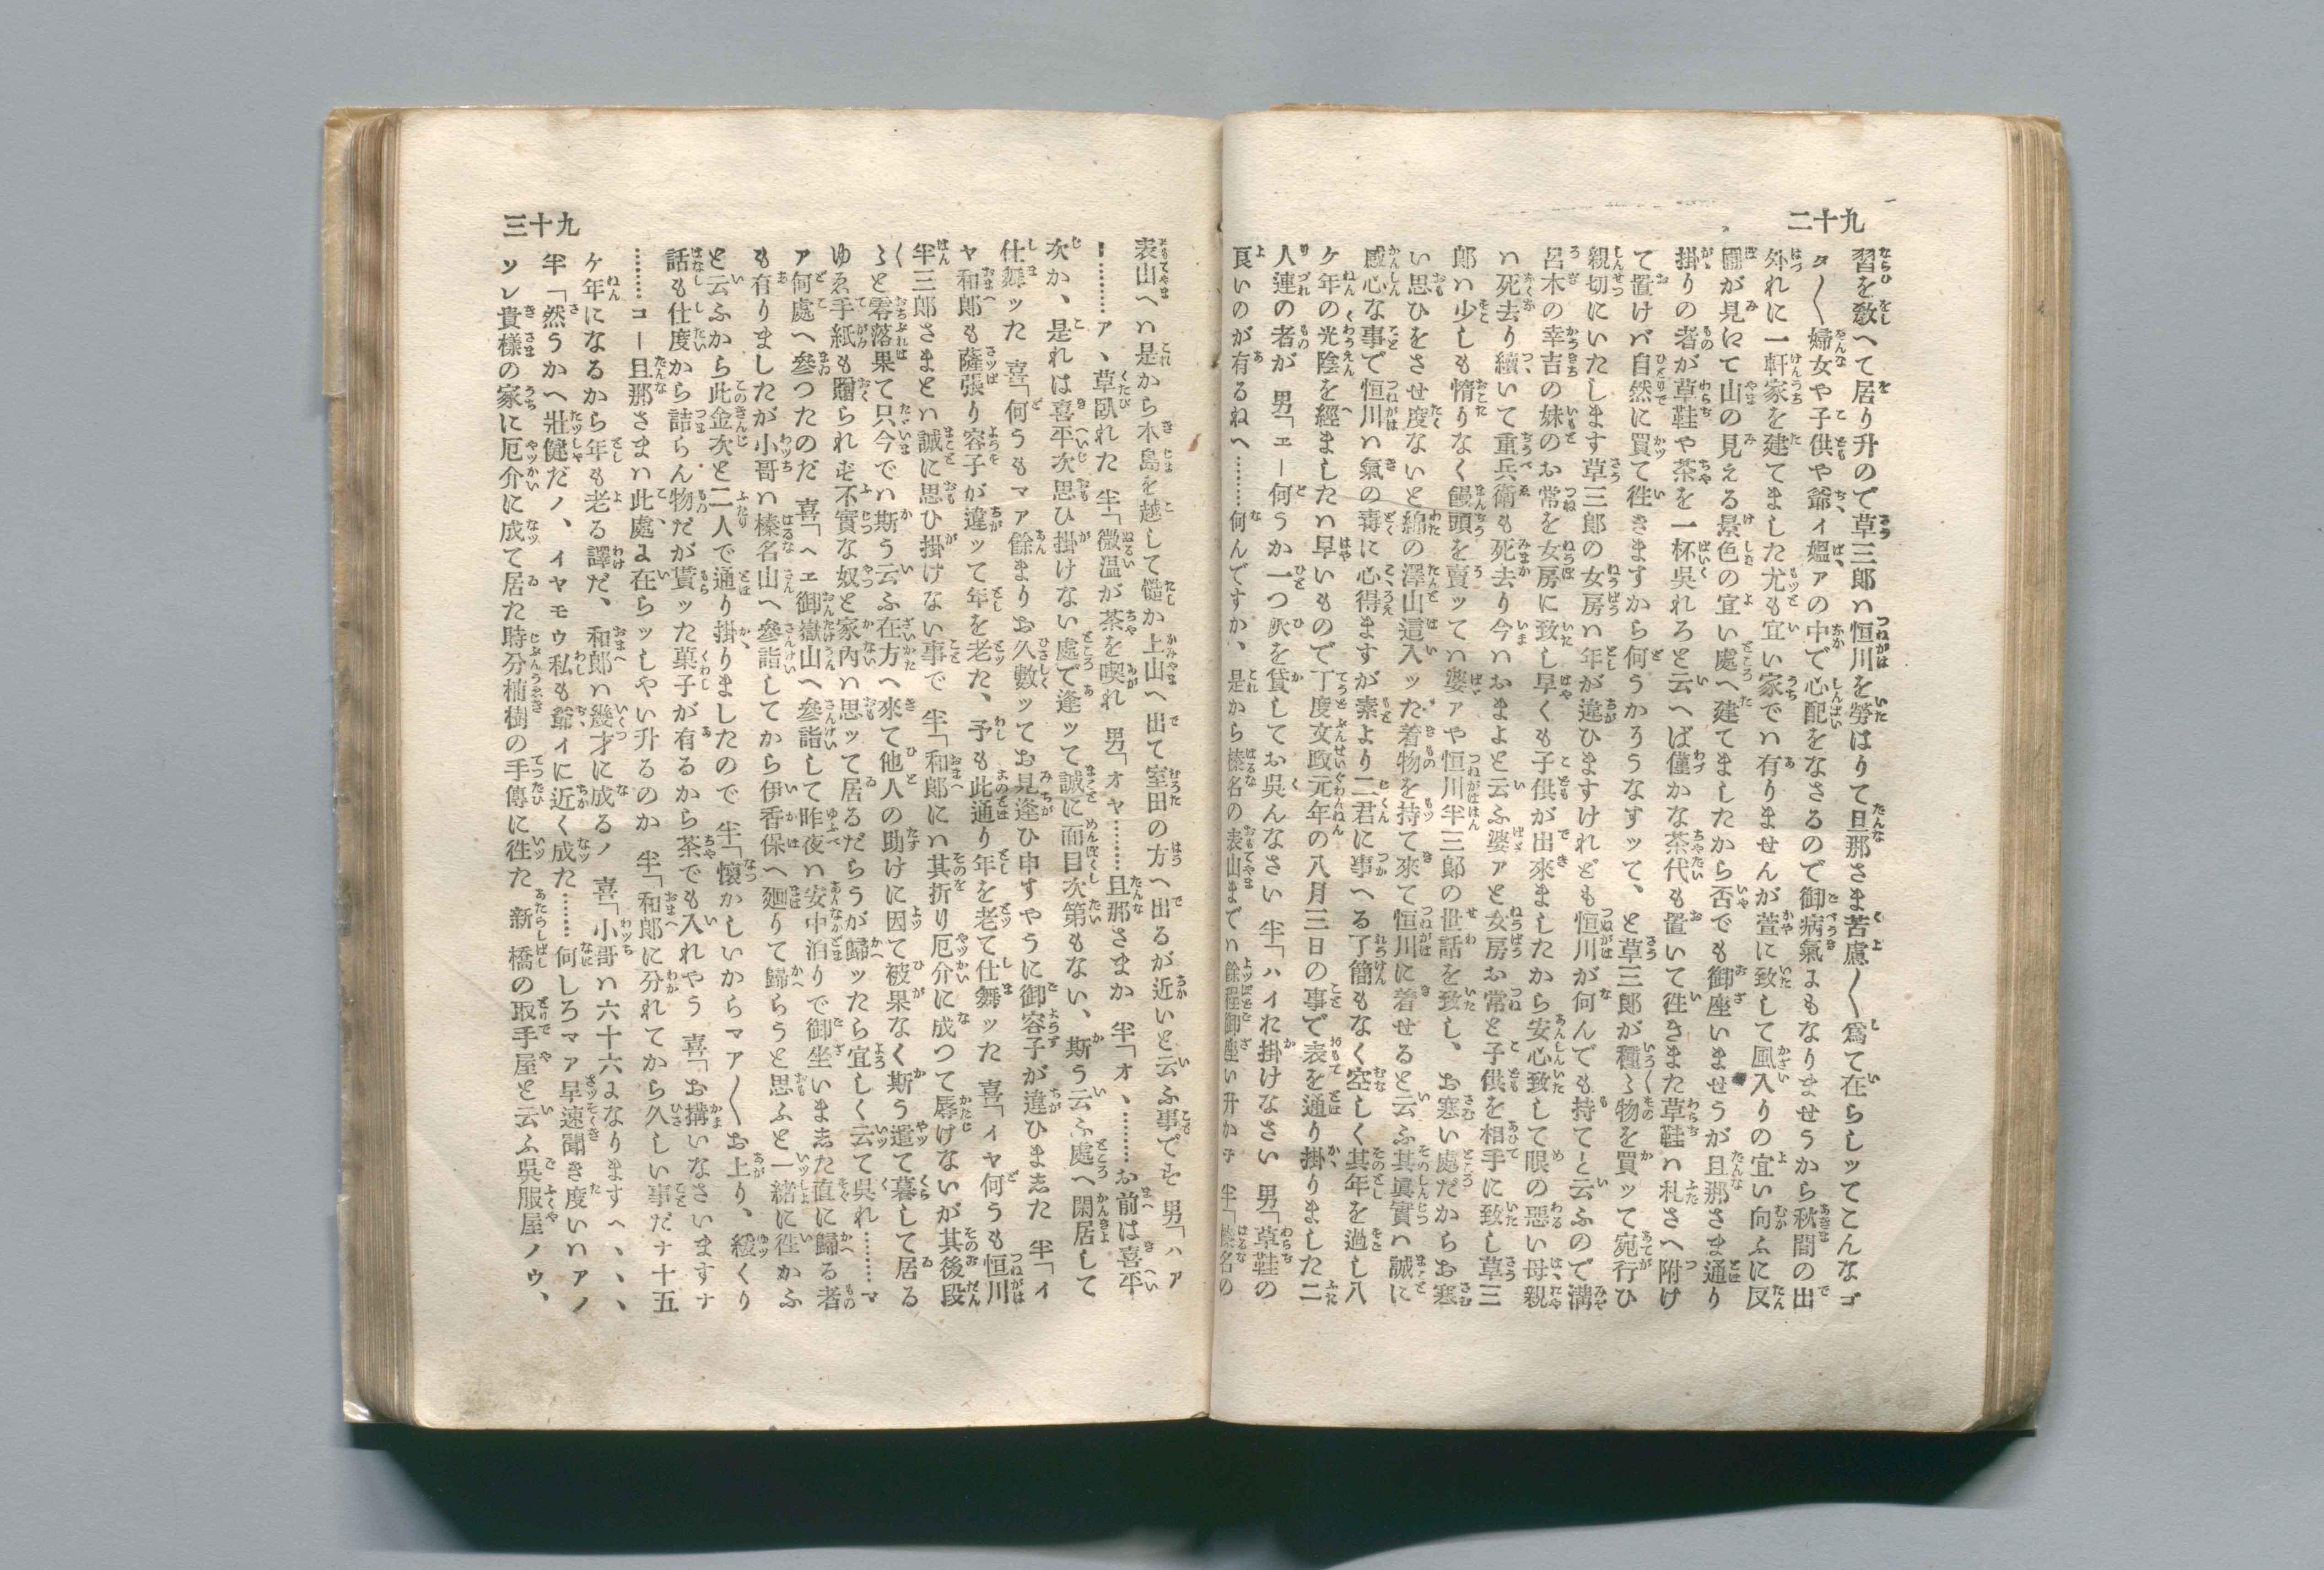 二十九
習を敎へて居り升ので草三郎ハ恒川を勞はりて旦那さま苦慮〱爲て在らしッてこんなゴ
タ〱婦女や子供や爺ィ媼ァの中で心配をなさるので御病氣よもなりませうから秋間の出
外れに一軒家を建てました尤も宜い家でハ有りませんが萱に致して風入りの宜い向ふに反
圃が見にて山の見える景色の宜い處へ建てましたから否でも御座いませうが旦那さま通り
掛りの者が草鞋や茶を一杯吳れろと云へば僅かな茶代も置いて徃きまた草鞋ハ札さへ附け
て置けバ自然に買て徃きますから何うかろうなすッて、と草三郎が種〻物を買ッて宛行ひ
親切にいたします草三郎の女房ハ年が違ひますけれども恒川が何んでも持てと云ふので溝
呂木の幸吉の妹のお常を女房に致し早くも子供が出來ましたから安心致して眼の惡い母親
ハ死去り續いて重兵衛も死去り今ハおまよと云ふ婆ァと女房お常と子供を相手に致し草三
郎ハ少しも惰りなく饅頭を賣ッてハ婆ァや恒川半三郎の世話を致し、お寒い處だからお寒
い思ひをさせ度ないと綿の澤山這入ッた着物を持て來て恒川に着せると云ふ其眞實ハ誠に
感心な事で恒川ハ氣の毒に心得ますが素より二君に事へる了簡もなく空しく其年を過し八
ケ年の光陰を經ましたハ早いもので丁度文政元年の八月三日の事で表を通り掛りました二
人連の者が 男「エー何うか一つ火を貸してお吳んなさい 半「ハイれ掛けなさい 男「草鞋の
良いのが有るねへ………何んですか、是から榛名の表山までハ餘程御座い升かヲ 半「榛名の
三十九
表山へハ是から木島を越して慥か上山へ出て室田の方へ出るが近いと云ふ事でも 男「ハア
ー………ア、草臥れた 半「微温が茶を喫れ 男「オヤ………旦那さまか 半「オ、………お前は喜平
次か、是れは喜平次思ひ掛けない處で逢ッて誠に面目次第もない、斯う云ふ處へ閑居して
仕舞ッた 喜「何うもマア餘まりお久數ッてお見逢ひ申すやうに御容子が違ひま志た 半「イ
ヤ和郎も薩張り容子が違ッて年を老た、予も此通り年を老て仕舞ッた 喜「イヤ何うも恒川
半三郎さまとハ誠に思ひ掛けない事で 半「和郎にハ其折り厄介に成つて辱けないが其後段
〱と零落果て只今でハ斯う云ふ在方へ來て他人の助けに因て被果なく斯う遣て暮して居る
ゆゑ手紙も贈られも不實な奴と家內ハ思ッて居るだらうが歸ッたら宜しく云て吳れ………マ
ア何處へ參つたのだ 喜「ヘエ御嶽山へ參詣して昨夜ハ安中泊りで御坐いま志た直に歸る者
も有りましたが小哥ハ榛名山へ參詣してから伊香保へ廻りて歸らうと思ふと一緒に徃かふ
と云ふから此金次と二人で通り掛りましたので 半「懷かしいからマア〱お上り、緩くり
話も仕度から詰らん物だが貰ッた菓子が有るから茶でも入れやう 喜「お搆いなさいますナ
………コー旦那さまハ此處よ在らッしやい升るのか 半「和郎に分れてから久しい事だナ十五
ケ年になるから年も老る譯だ、和郎ハ幾才に成るノ 喜「小哥ハ六十六よなりますヘ、、、
半「然うかへ壯健だノ、イヤモウ私も爺ィに近く成た………何しろマア早速聞き度いハアノ
ソレ貴樣の家に厄介に成て居た時分植樹の手傳に徃た 新橋の取手屋と云ふ吳服屋ノウ、